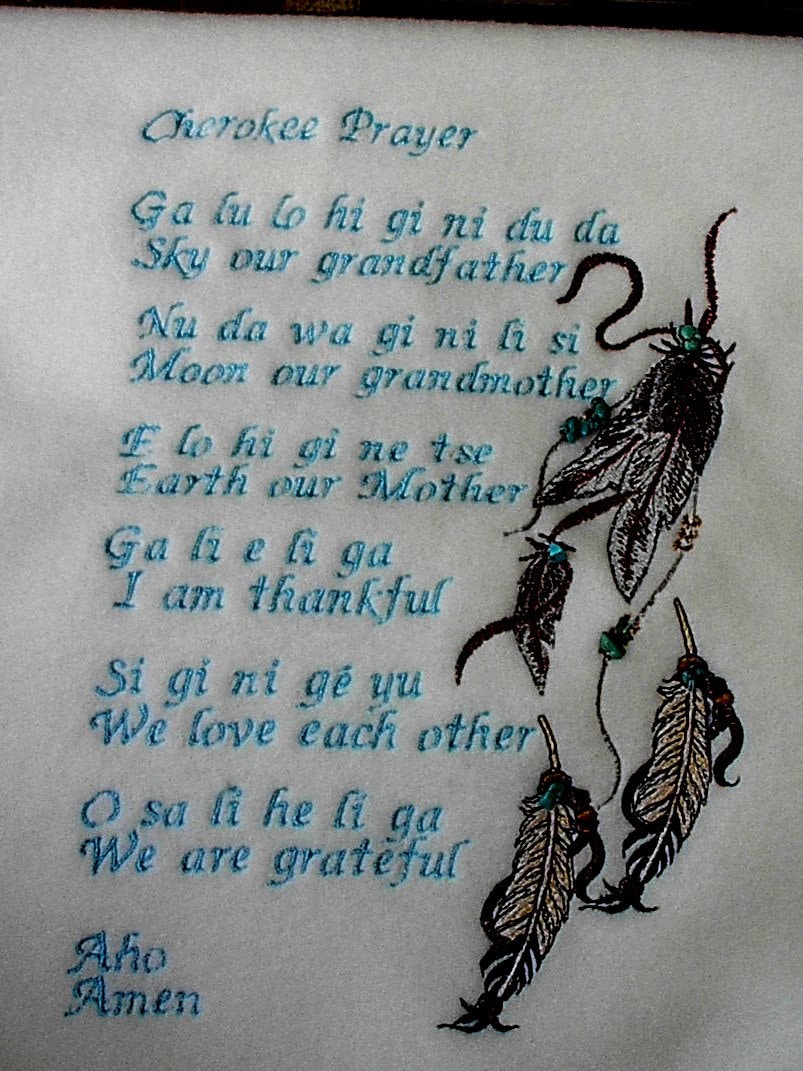 Cherokee Prayer
Ga lu lo hi gi ni du da
Sky our grandfather
Nu da wa gi ni li si
Moon our grandmother
E lo hi gi ne tse
Earth our Mother
Ga li e li ga
I am thankful
Si gi ni gé yu
We love each other
O sa li he li ga
We are grateful
Aho
Amen